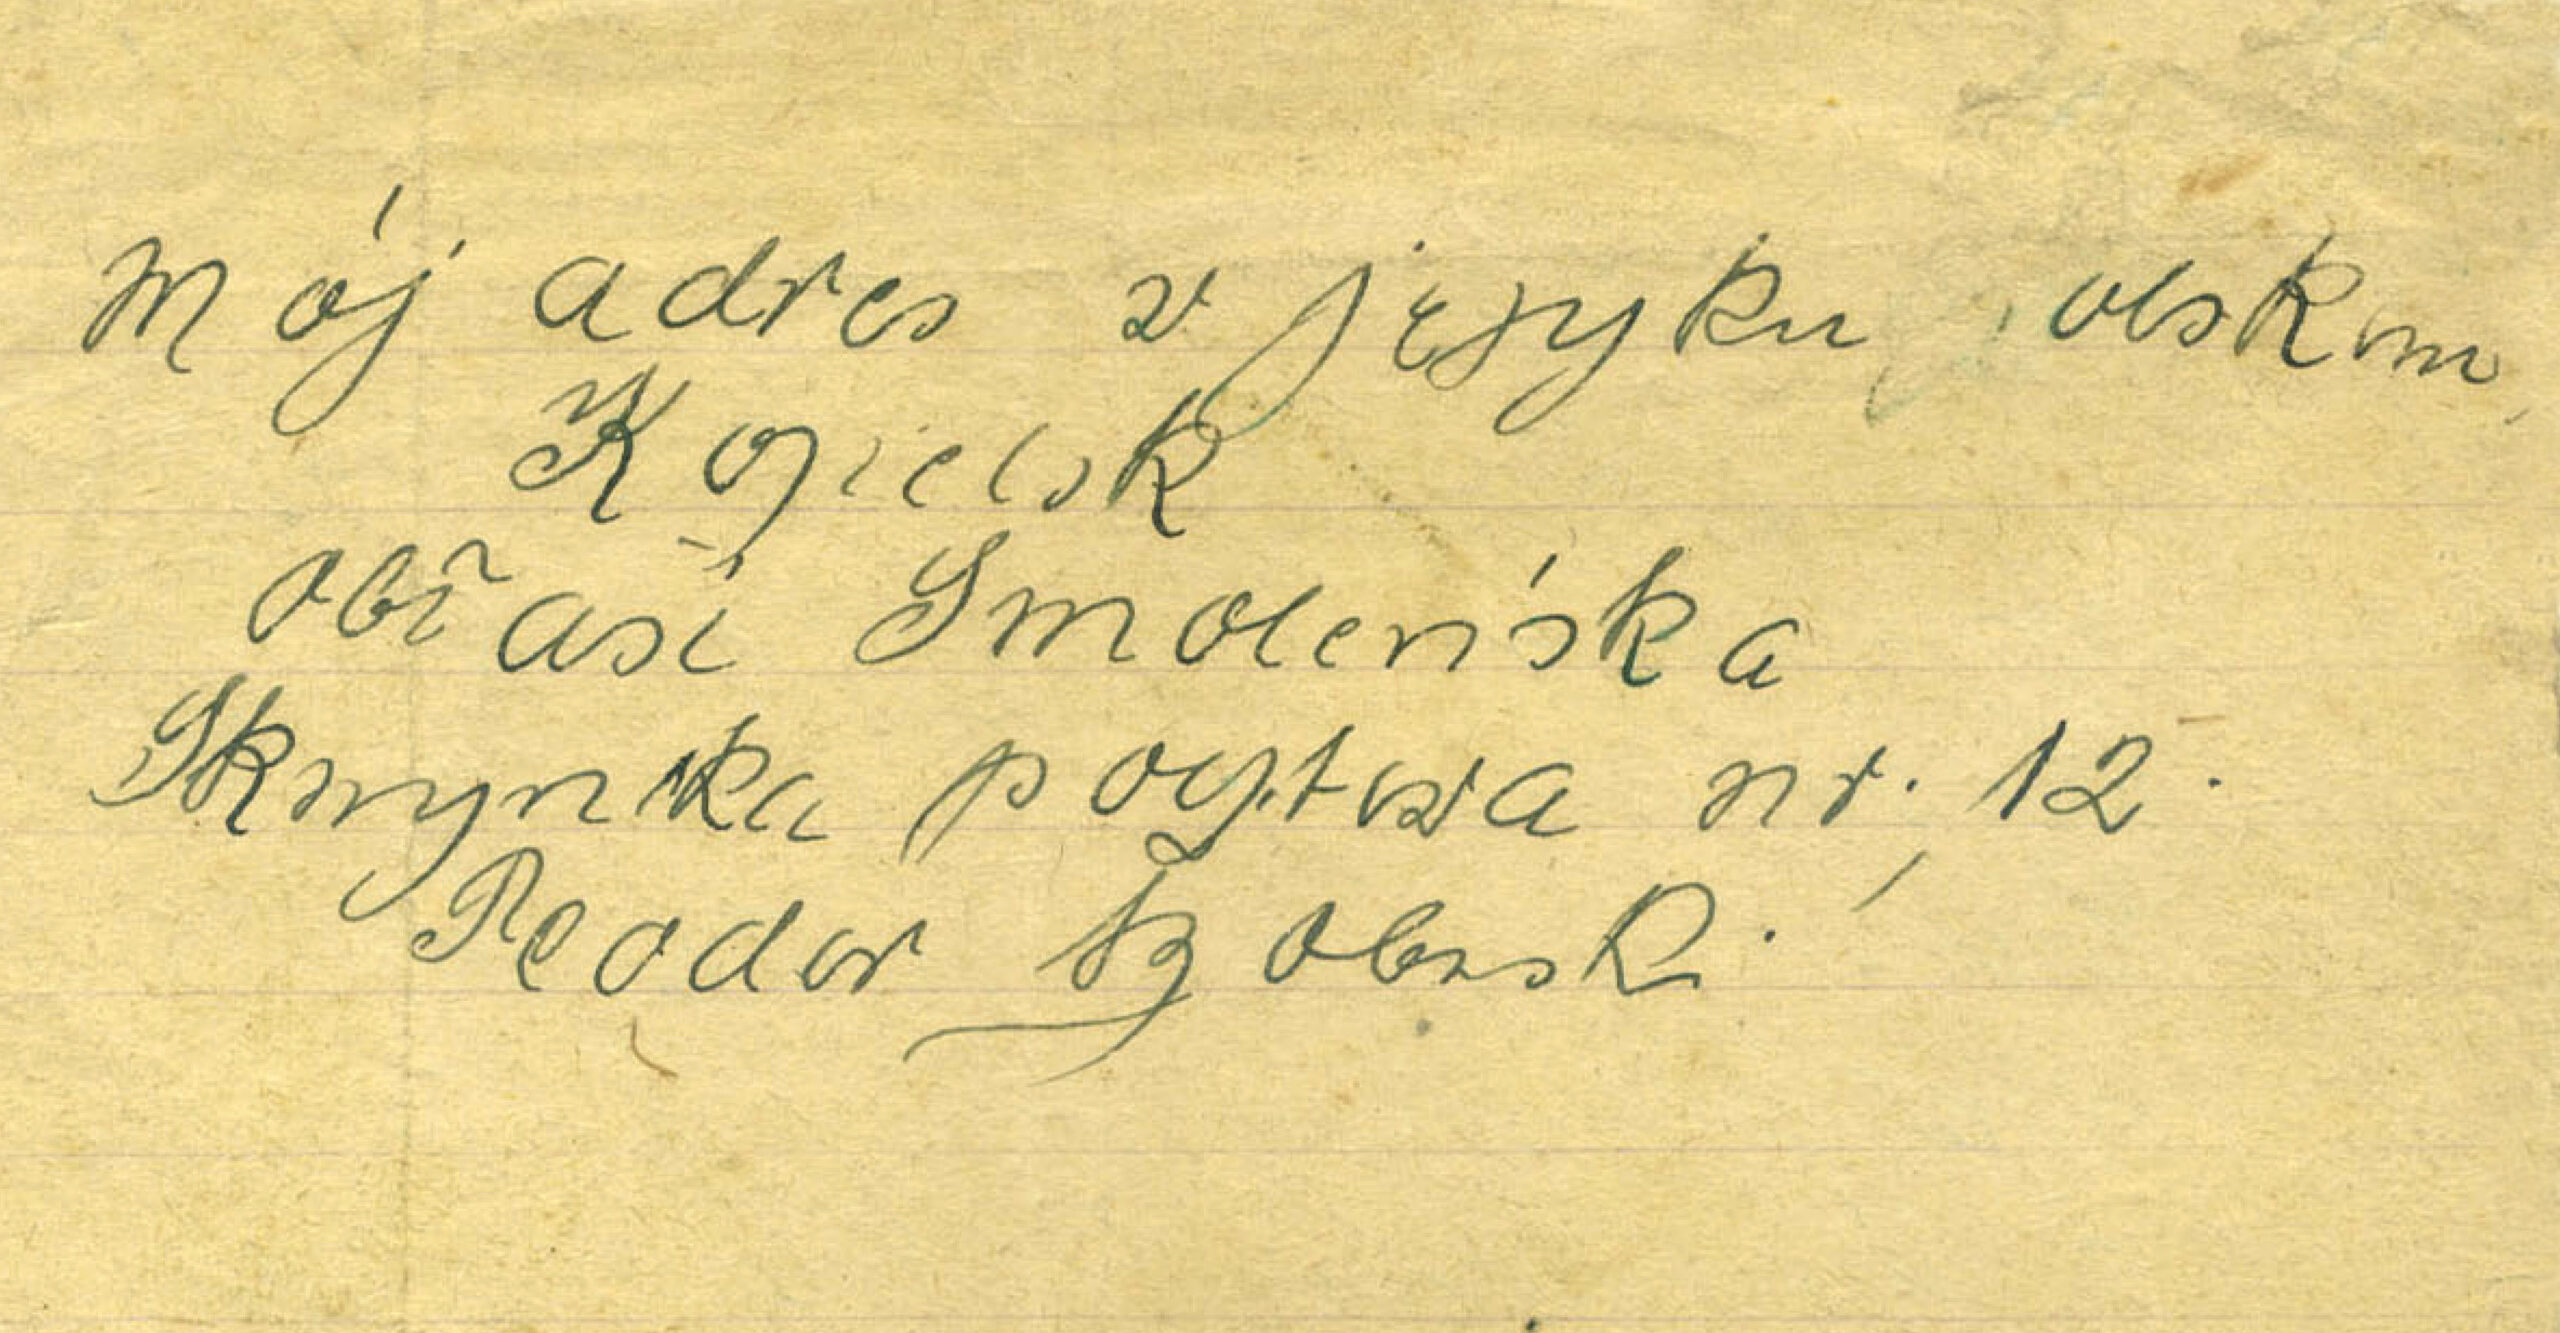 Mój adres w języku polskim
Kozielsk
obłaść Smoleńska
Skrzynka pocztowa nr. 12.
Teodor